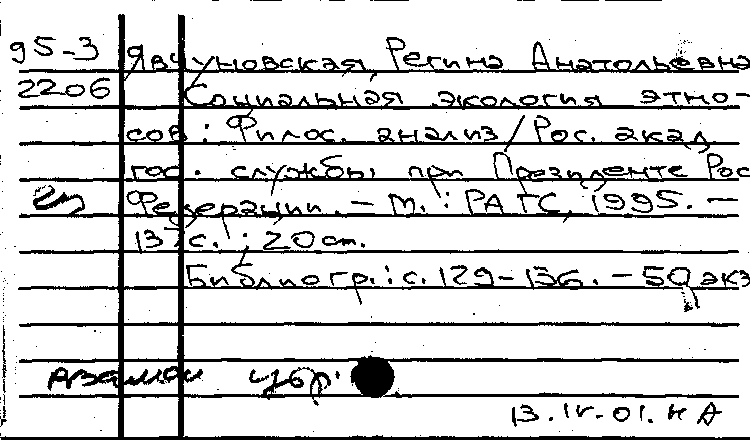 95-3 Явчуновская, Регина Анатольевна
2206 Социальная экология этно-
сов : Филос. анализ / Рос. акад.
гос. службы при Президенте Рос
Федерации. – М. : РАГС, 1995. –
137с. ; 20 см.
Библиогр.: с. 129-136. – 50 экз
13.IV-01. НА